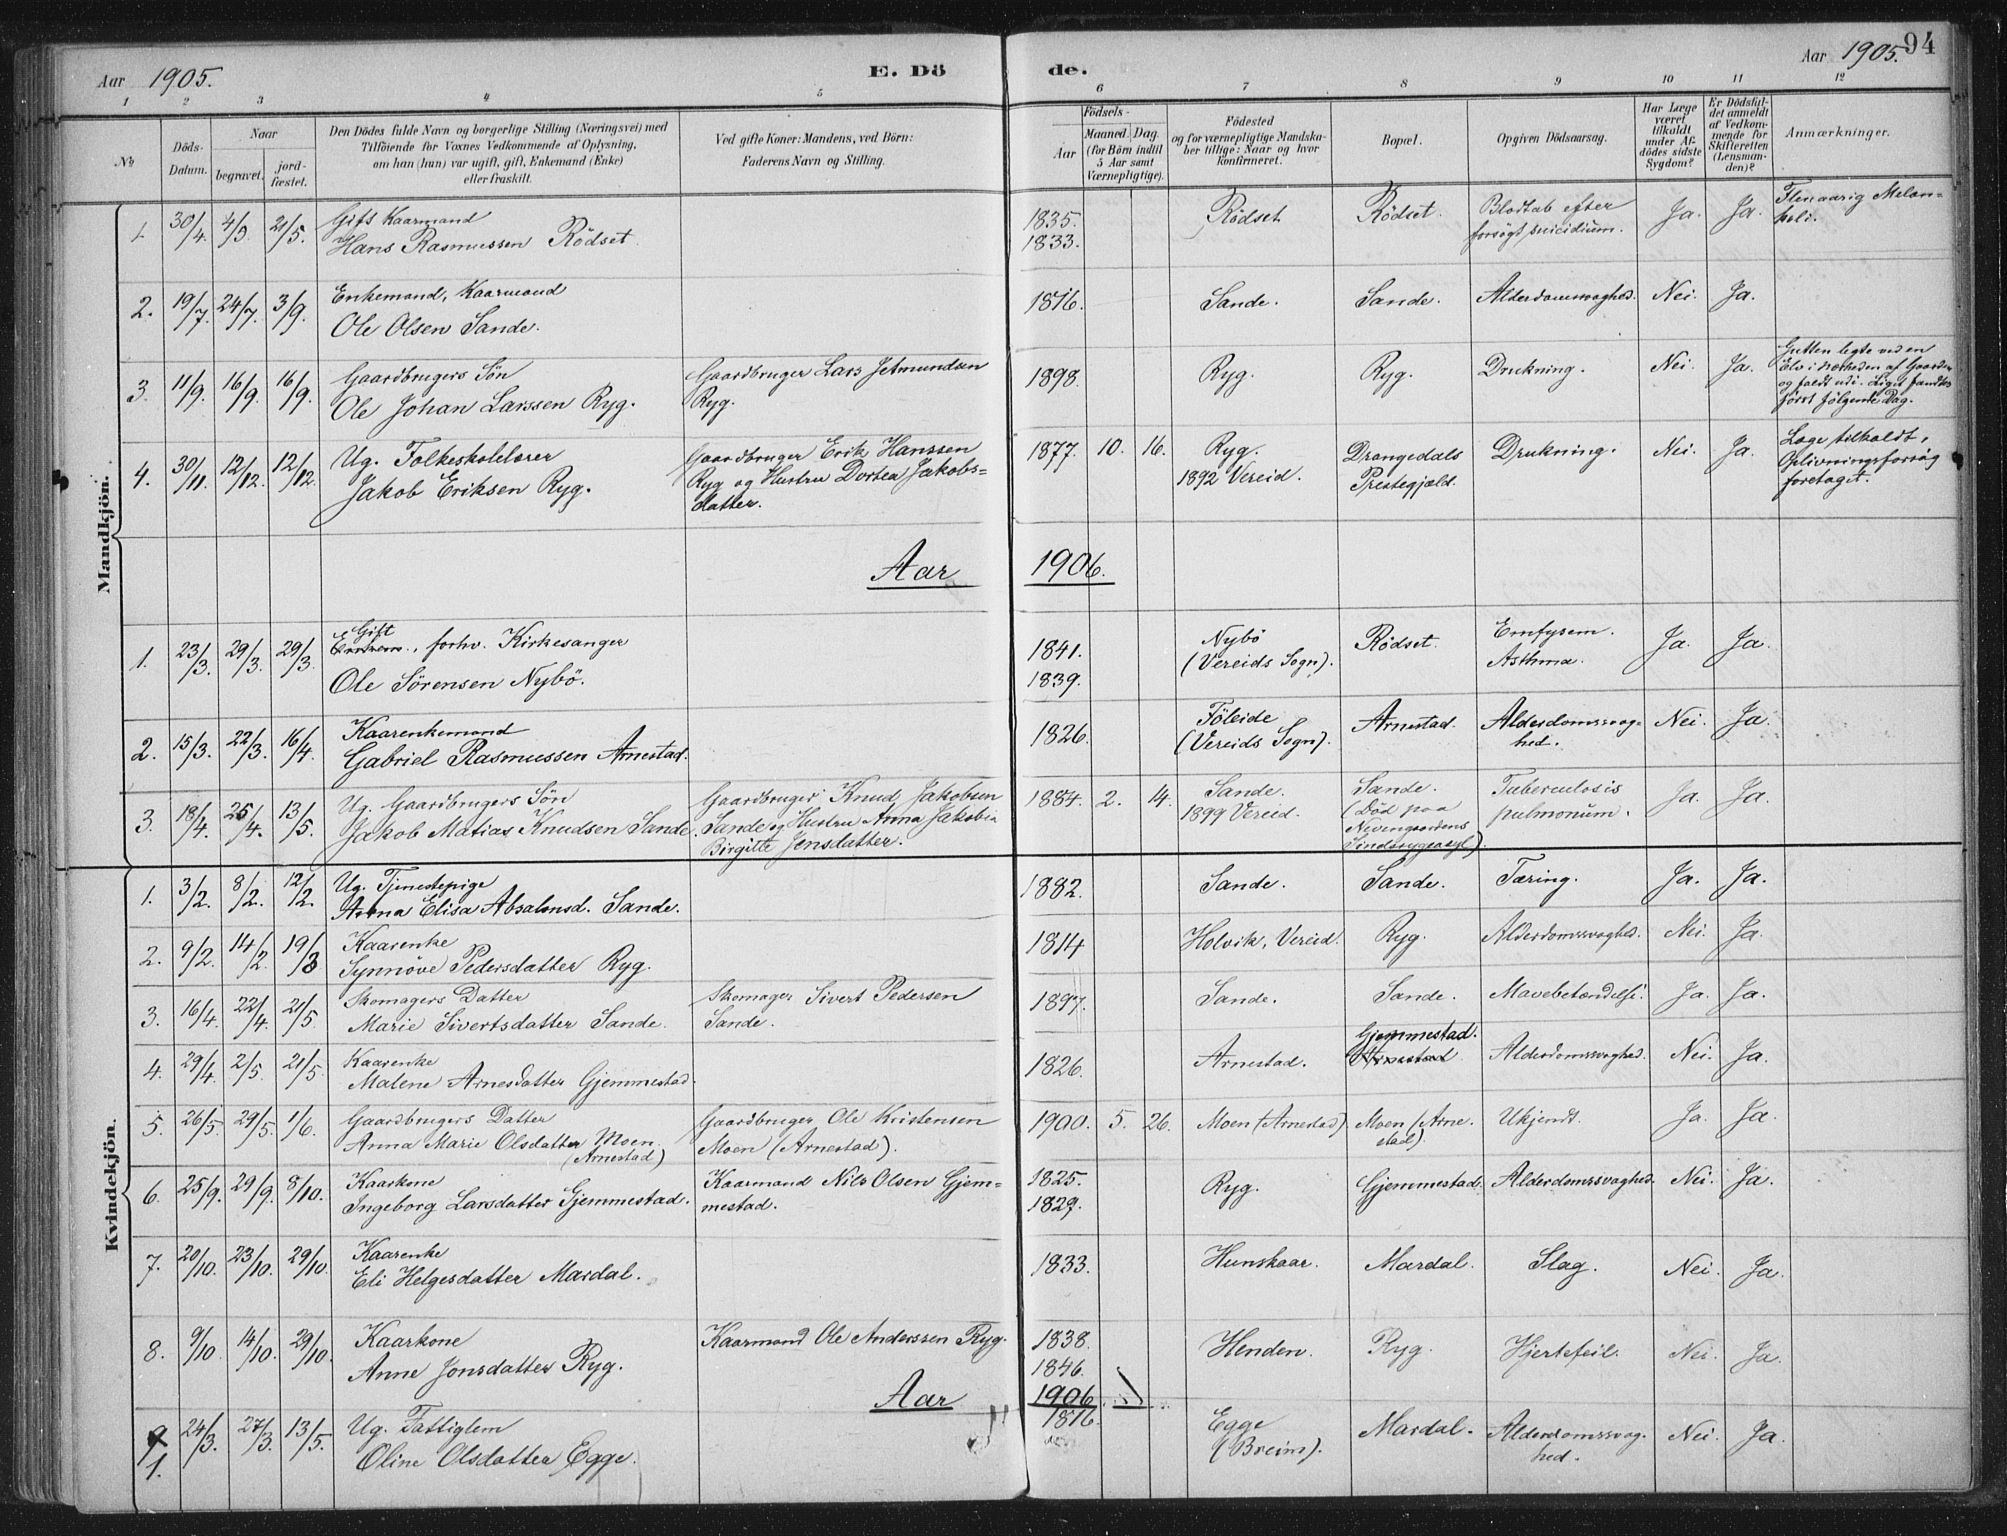 Aar 1905. E. Dö de. Aar 1905. 94
1 2 3 4 5 6 7 8 9 10 11 12
No
Döds-Datum.
Naar
begravet.
jord-fæstet.
Den Dödes fulde Navn og borgerlige Stilling (Næringsvei) med
Tilföiende for Voxnes Vedkommende af Oplysning,
om han (hun) var ugift, gift, Enkemand (Enke)
eller fraskilt.
Ved gifte Koner: Mandens, ved Börn:
Faderens Navn og Stilling.
Födsels-
Aar
Maaned. Dag.
(for Börn indtil
5 Aar samt
Værnepligtige).
Födested
og for værnepligtige Mandskaber
tillige: Naar og hvor
konfirmeret.
Bopæl.
Opgiven Dödsaarsag.
Har Læge
været
tilkaldt
under Afdödes
sidste
Sygdom?
Er Dödsfaldet
anmeldt
af Vedkommende
for
Skifteretten
(Lensmanden)?
Anmærkninger.
Mandkjön.
1. 30/4. 4/5. 21/5. Gift Kaarmand
Hans Rasmussen Rödset.
1835.
1833.
Rödset Rödset. Blodtab efter
forsögt suicidium.
Ja. Ja. Flenaarig Melan-
koli.
2. 19/7. 24/7. 3/9. Enkemand, Kaarmand
Ole Olsen Sande.
1816. Sande. Sande. Alderdomsvaghed. Nei. Ja.
3. 11/9. 16/9. 16/9. Gaardbrugers Sön
Ole Johan Larssen Ryg.
Gaardbruger Lars Jetmundsen
Ryg.
1898. Ryg. Ryg. Drukning. Nei. Ja.
Gutten legte ved en
Elv i nærheden af Gaarden
og faldt udi. Liget fandtes
först fölgende Dag.
4. 30/11. 12/12. 12/12. Ug. Folkeskolelærer
Jakob Eriksen Ryg.
Gaardbruger Erik Hanssen
Ryg og Hustru Dortea Jakobs-
datter.
1877. 10. 16. Ryg.
1892 Vereid.
Drangedals
Prestegjæld.
Drukning. Nei. Ja.
Læge tilkaldt,
Oplivningsforsög
foretaget.
Aar 1906.
1. 23/3. 29/3. 29/3. Gift
forhv. Kirkesanger
Ole Sörensen Nybö.
1841.
1839.
Nybö
(Vereids Sogn).
Rödset. Emfysem.
Asthma.
Ja. Ja.
2. 15/3. 22/3. 16/4. Kaarenkemand
Gabriel Rasmussen Arnestad.
1826. Föleide
(Vereids Sogn).
Arnestad. Alderdomssvag-
hed.
Nei. Ja.
3. 18/4. 25/4. 13/5. Ug. Gaardbrugers Sön
Jakob Matias Knudsen Sande.
Gaardbruger Knud Jakobsen
Sande og Hustru Anna Jakobea
Birgitte Jensdatter.
1884. 2. 14. Sande.
1899 Vereid.
Sande.
(Död paa
Nevengaardens
Sindssygeasyl).
Tuberculosis
pulmonum.
Ja. Ja.
Kvindekjön.
1. 3/2. 8/2. 12/2. Ug. Tjenestepige
Anna Elisa Absalonsd. Sande.
1882. Sande. Sande. Tæring. Ja. Ja.
2. 9/2. 14/2. 19/3 Kaarenke
Synnöve Pedersdatter Ryg.
1814 Holvik, Vereid. Ryg. Alderdomssvaghed. Nei. Ja.
3. 16/4. 22/4. 21/5. Skomagers Datter
Marie Sivertsdatter Sande.
Skomager Sivert Pedersen
Sande.
1897. Sande. Sande. Mavebetændelse. Ja. Ja.
4. 29/4. 2/5. 21/5. Kaarenke
Malene Arnesdatter Gjemmestad.
1826. Arnestad. Gjemmestad.
Arnestad
Alderdomssvaghed. Nei. Ja.
5. 26/5. 29/5. 1/6. Gaardbrugers Datter
Anna Marie Olsdatter Moen.
(Arnestad)
Gaardbruger Ole Kristensen
Moen (Arnestad).
1900. 5. 26. Moen (Arnestad) Moen (Arne-
stad).
Ukjendt. Ja. Ja.
6. 25/9. 29/9. 8/10. Kaarkone
Ingeborg Larsdatter Gjemmestad.
Kaarmand Nils Olsen Gjem-
mestad.
1825.
1829.
Ryg. Gjemmestad. Alderdomssvaghed. Nei. Ja.
7. 20/10. 23/10. 29/10. Kaarenke
Eli Helgesdatter Mardal.
1833. Hunskaar. Mardal. Slag. Nei. Ja.
8. 9/10. 14/10. 29/10. Kaarkone
Anne Jonsdatter Ryg.
Kaarmand Ole Anderssen Ryg.
1838.
1846.
Henden. Ryg. Hjertefeil. Nei. Ja.
Aar 1906.
1. 24/3. 27/3. 13/5. Ug. Fattiglem
Oline Olsdatter Egge.
1816. Egge
(Breim).
Mardal. Alderdomssvag-
hed.
Nei. Ja.